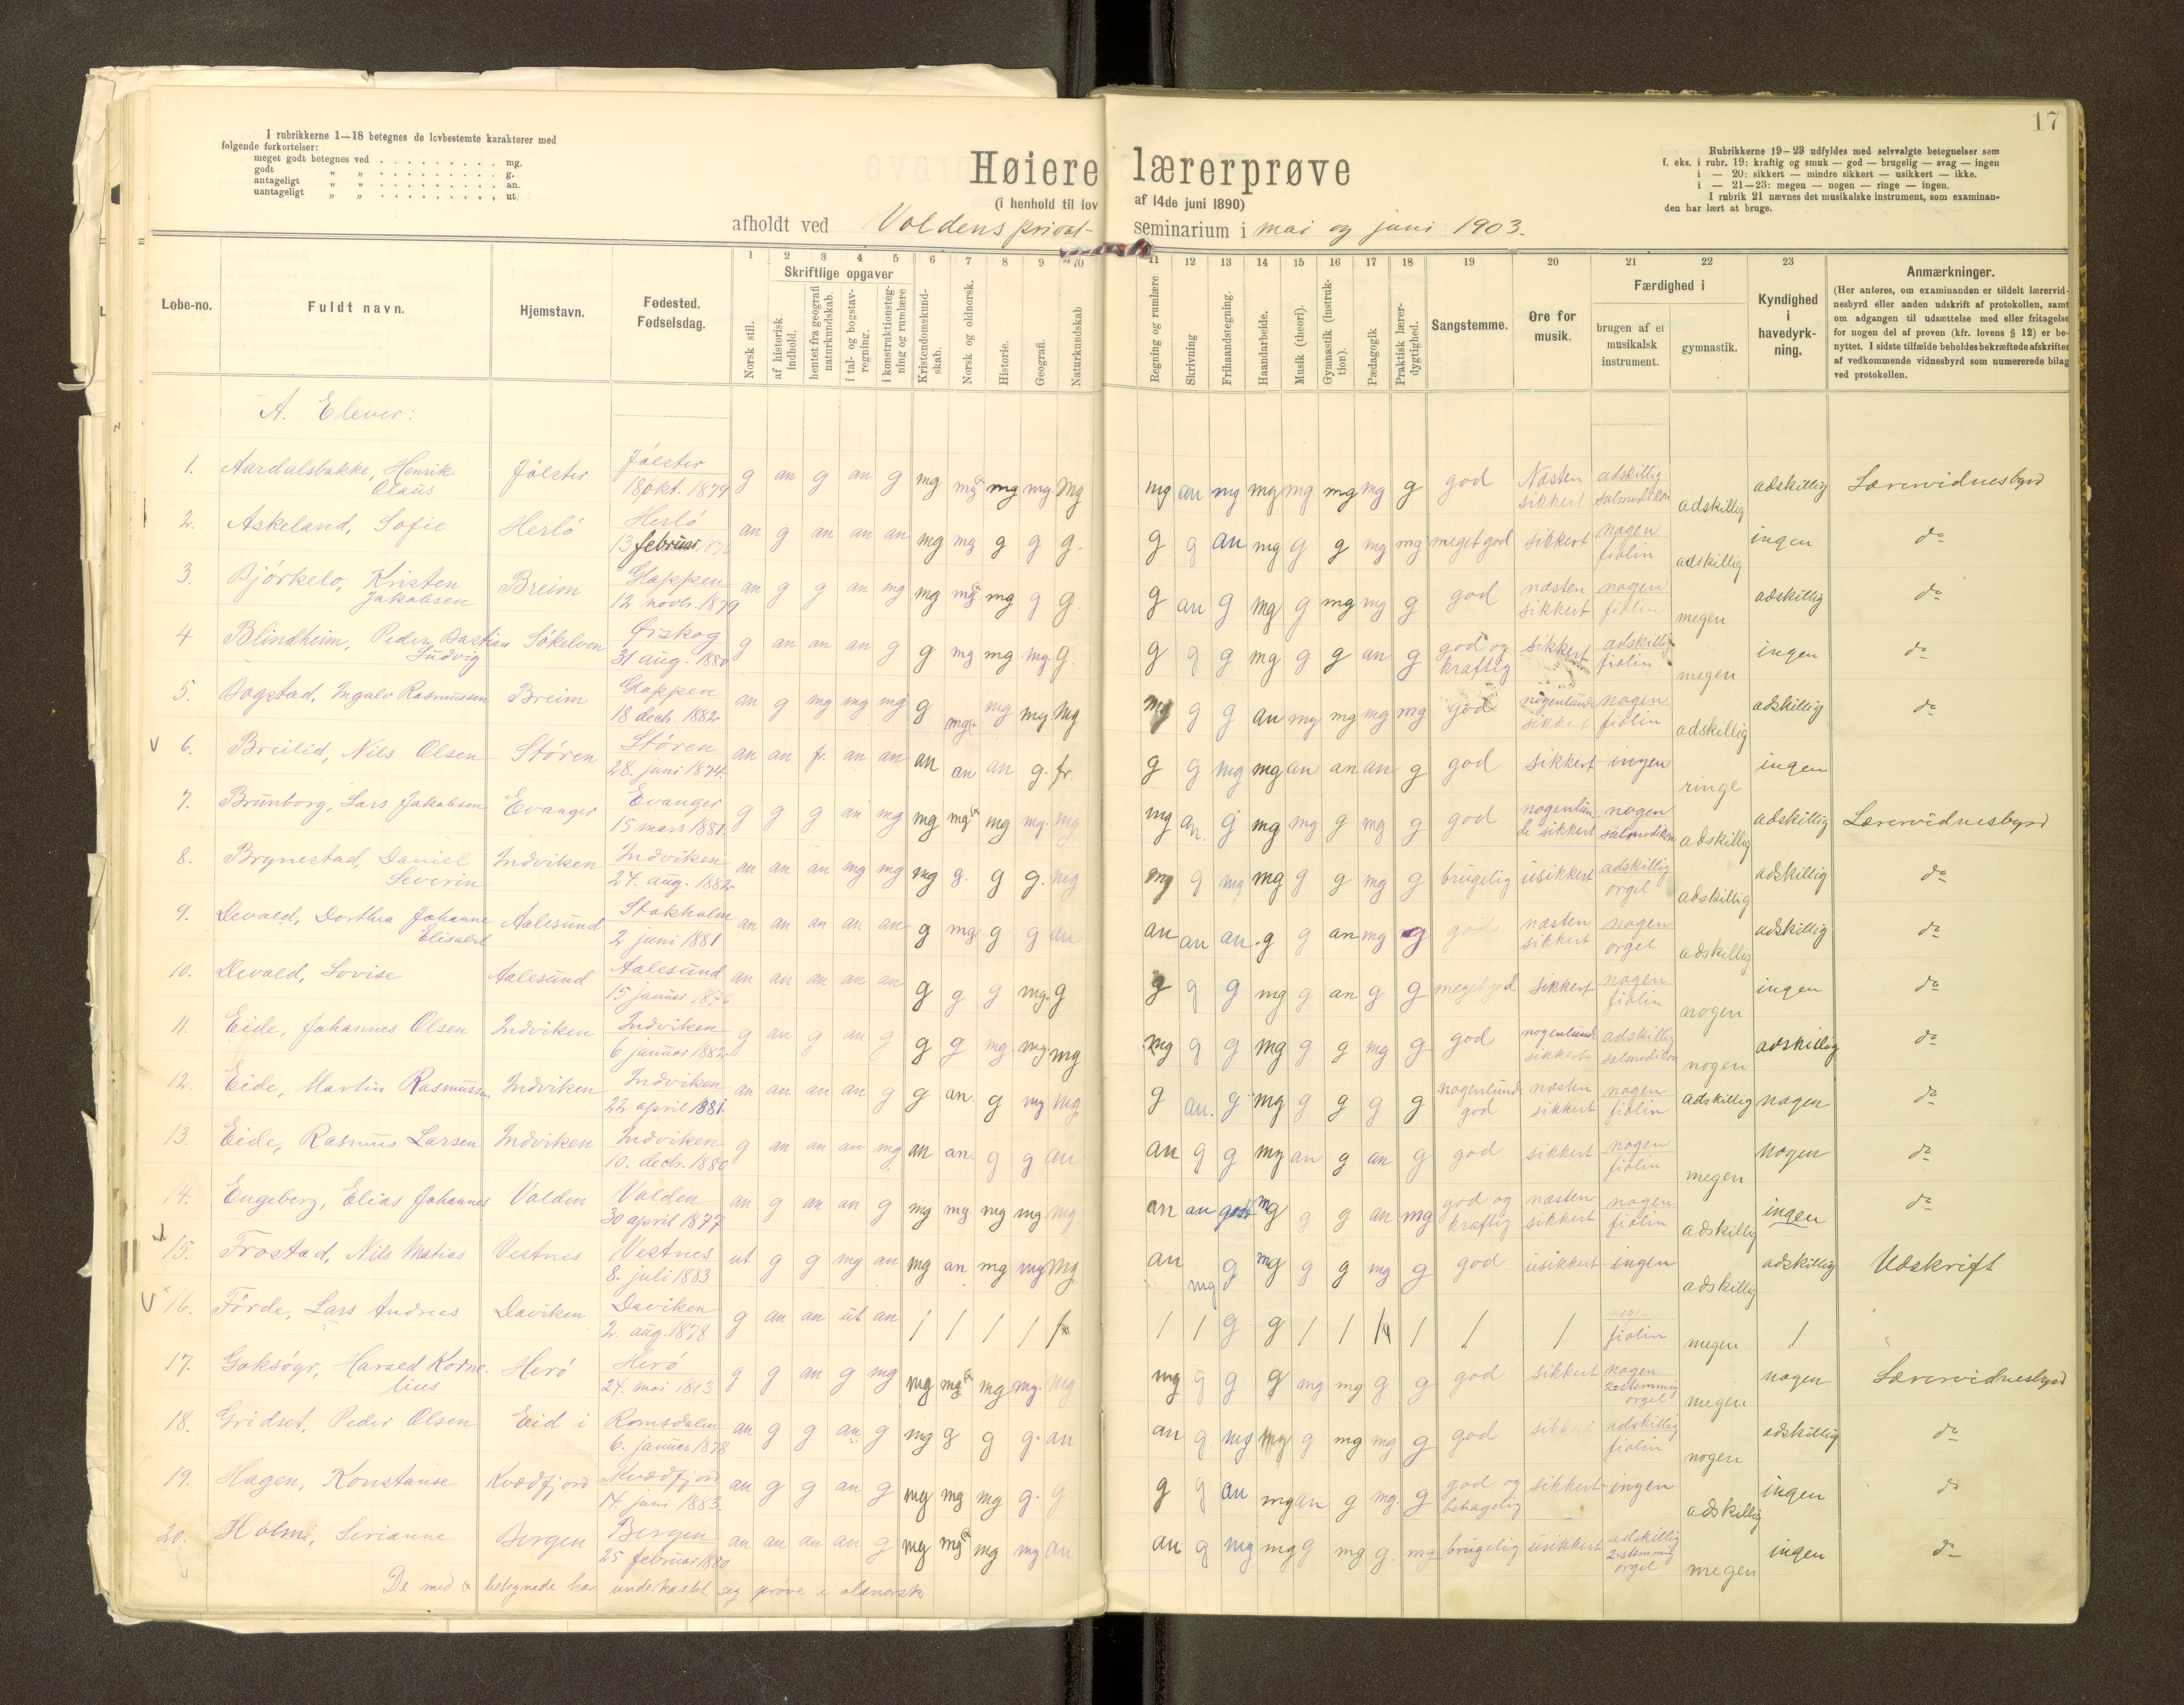 17
I rubrikkerne 1—18 betegnes de lovbestemte karakterer med
følgende forkortelser:
meget godt betegnes ved . . . . . . . . . mg.
godt " " . . . . . . . . . g.
antageligt " " . . . . . . . . . an.
uantageligt " " . . . . . . . . . ut.
Høiere lærerprøve
(i henhold til lov af 14de juni 1890)
afholdt ved Voldens privat- seminarium i mai og juni 1903.
Rubrikkerne 19—23 udfyldes med selvvalgte betegnelser som
f. eks. i rubr. 19: kraftig og smuk — god — brugelig — svag — ingen
i — 20: sikkert — mindre sikkert — usikkert — ikke.
i — 21—23: megen — nogen — ringe — ingen.
I rubrik 21 nævnes det musikalske instrument, som examinan-
den har lært at bruge.
Løbe-no.
Fuldt navn.
Hjemstavn.
Fødested.
Fødselsdag.
1 2 3 4 5 6 7 8 9 10 11 12 13 14 15 16 17 18 19 20 21 22 23
Skriftlige opgaver
Norsk stil.
af historisk indhold.
hentet fra geografi naturkundskab.
i tal- og bogstav-regning.
i konstruktionsteg-ning og rumlære
Kristendomskund-skab.
Norsk og oldnorsk.
Historie.
Geografi.
Naturkundskab
Regning og rumlære
Skrivning
Frihaandstegning.
Haandarbeide.
Musik (theori).
Gymnastik (instruk-tion).
Pædagogik
Praktisk lærer-dygtighed.
Sangstemme.
Øre for musik.
Færdighed i
brugen af et musikalsk instrument.
gymnastik.
Kyndighed i havedyrk-ning.
Anmærkninger.
(Her anføres, om examinanden er tildelt lærervid-
nesbyrd eller anden udskrift af protokollen, samt
om adgangen til udsættelse med eller fritagelse
for nogen del af prøven (kfr. lovens § 12) er be-
nyttet. I sidste tilfælde beholdes bekræftede afskrifter
af vedkommende vidnesbyrd som numererede bilag
ved protokollen.
A. Elever:
1. Aardalsbakke, Henrik Olaus Jölster Jölster 18 okt. 1879 g an g an g mg mg x mg mg mg mg an mg mg mg mg mg g god Næsten sikkert adskillig salmodikon adskillig adskillig Lærervidnesbyrd
2. Askeland, Sofie Herlö Herlö 13 februar an g an an an mg mg g g g. g g an mg g g mg mg meget god sikkert nogen fiolin adskillig ingen do
3. Bjórkelo, Kristen Jakobsen Breim Gloppen 12 novbr. 1879 an g g an mg mg mg x mg g g. g an g mg g mg mg g god næsten sikkert nogen fiolin megen adskillig do
4 Blindheim, Peder Bastian Ludvig Sökelven Ørskog 31 aug. 1880 g an an an g g mg mg mg g. g g g mg g g an g god og kraftig sikkert adskillig fiolin megen ingen do
5. Bogstad, Ingolv Rasmussen Breim Gloppen 18 decb. 1882 an g mg mg mg g mg x mg mg mg mg g g an mg mg mg mg god nogenlunde sikkert nogen fiolin adskillig adskillig do
6. Breilid, Nils Olsen Stören Stören 28. juni 1874. an an fr. an an an an an g. fr. g g mg mg an an an g god sikkert ingen ringe ingen
7. Brunborg, Lars Jakobsen Evanger Evanger 15 mars 1881. g g g an mg mg mg x mg mg. mg mg an. g mg mg g mg g god nogenlun-de sikkert nogen salmodikon adskillig adskillig Lærervidnesbyrd
8. Brynestad, Daniel Severin Indviken Indviken 24. aug. 1882 an an an mg mg mg g. g g. mg mg g mg mg g g mg g brugelig usikkert adskillig orgel adskillig adskillig do
9. Devold, Dorthea Johanne Elisabet Aalesund Stokholm 2 juni 1881 an an an an an g mg g g an an an an g g an mg g god næsten sikkert nogen orgel adskillig adskillig do
10. Devold, Lovise Aalesund Aalesund 15 januar 1876 an an an an an g g g mg. g g g g mg g an g g meget god sikkert nogen fiolin nogen ingen do
11. Eide, Johannes Olsen Indviken Indviken 6 januar 1882 g an g an g g g mg mg mg mg g g mg g g mg g god nogenlunde sikkert adskillig salmodikon nogen adskillig do
12. Eide, Martin Rasmussen Indviken Indviken 22 april 1881 an an an an g g an. g mg mg g an. g mg g g g g nogenlunde god næsten sikkert nogen fiolin adskillig nogen do
13. Eide, Rasmus Larsen Indviken Indviken 10. decbr. 1880 g an an an mg an an. g g an an g g mg an g an g god sikkert nogen fiolin megen nogen do
14. Engeberg, Elias Johannes Volden Volden 30 april 1877 an g an an g mg mg mg mg mg an an godt mg g g an mg god og kraftig næsten sikkert nogen fiolin adskillig ingen do
15. Frostad, Nils Matias Vestnes Vestnes 8. juli 1883 ut g g mg an mg an mg mg mg an mg g mg g g mg g god usikkert ingen adskillig adskillig Udskrift
16. Förde, Lars Andreas Daviken Daviken 2. aug. 1878 g an an ut an / / / / / / / g g / / / / / / fiolin megen /
17. Goksöyr, Harald Korne-lius Herö Herö 24. mai 1883 g g an g mg mg mg x mg mg. mg mg g g g mg mg g g god sikkert nogen 2-stemmig orgel megen nogen Lærervidnesbyrd
18. Gridset, Peder Olsen Eid i Romsdalen 6. januar 1878 an g g an g mg g g g. an an g mg mg g mg mg g god sikkert adskillig fiolin nogen adskillig do
19. Hagen, Konstanse Kvædfjord Kvædfjord 14. juni 1883. an g g an g mg mg mg g. g g g an mg an g mg. g god og behagelig sikkert ingen adskillig ingen do
20. Holm, Serianne Bergen Bergen 25 februar 1880 an an an an g mg mg x mg mg an an g mg mg g mg g. mg brugelig usikkert adskillig 2-stemmig orgel megen ingen do
De med x betegnede har underkastet seg prøve i oldnorsk